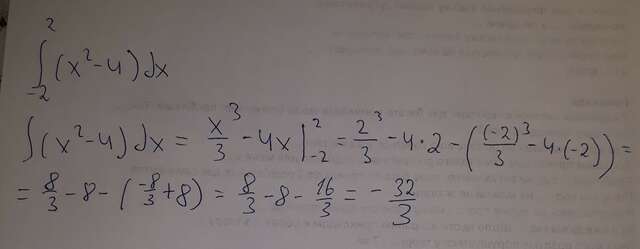 ∫_{-2}^{2} (x² - 4) dx
∫(x² - 4) dx = x³/3 - 4x |_{-2}^{2} = 2³/3 - 4·2 - ((-2)³/3 - 4·(-2)) =
= 8/3 - 8 - (-8/3 + 8) = 8/3 - 8 - 16/3 = - 32/3